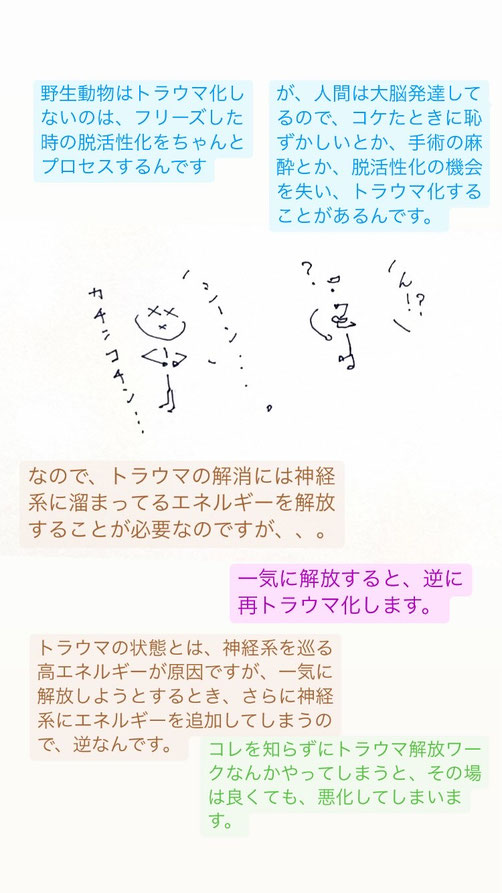 野生動物はトラウマ化し
ないのは、フリーズした
時の脱活性化をちゃんと
プロセスするんです
が、人間は大脳発達して
るので、コケたときに恥
ずかしいとか、手術の麻
酔とか、脱活性化の機会
を失い、トラウマ化する
ことがあるんです。
カチンコチン...
シーン...
?
ん!?
なので、トラウマの解消には神経
系に溜まってるエネルギーを解放
することが必要なのですが、、。
一気に解放すると、逆に
再トラウマ化します。
トラウマの状態とは、神経系を巡る
高エネルギーが原因ですが、一気に
解放しようとするとき、さらに神経
系にエネルギーを追加してしまうの
で、逆なんです。
コレを知らずにトラウマ解放ワー
クなんかやってしまうと、その場
は良くても、悪化してしまいま
す。